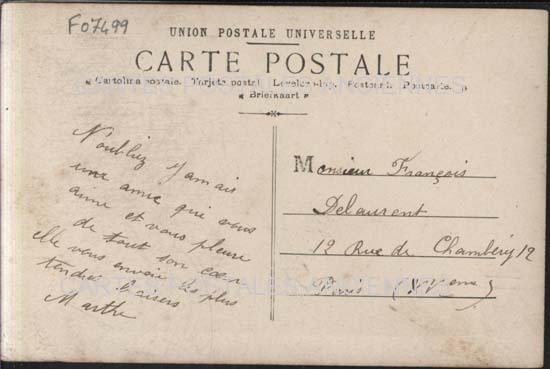 F07499
UNION POSTALE UNIVERSELLE
CARTE POSTALE
Cartolina postale. Tarjeta postal. Levelező-lap. Postcard. Postcarte.
Briefkaart
N'oubliez jamais
une amie que vous
aime et vous pleure
de tout son cœur
elle vous envoie les plus
tendres baisers
Marthe
Monsieur François
Delaurent
12 Rue de Chambéry 12
Paris (XVeme)